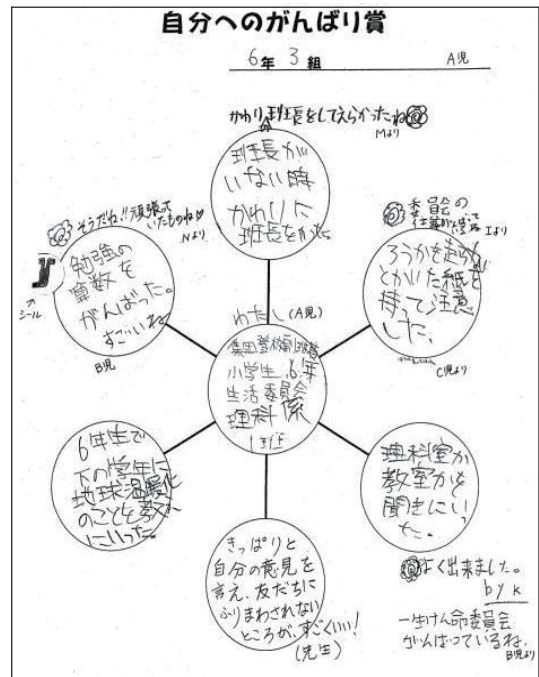 自分へのがんばり賞
6年 3組 A児
かわり班長をしてえらかったね
Mより
班長が
いない時
かわりに
班長をかも
そうだね!!頑張って
いたものね♡
Nより
シール
勉強の
算数を
がんばった。
すごいね
B児
委員会の
仕事がんばって
Iより
ろうかを走らない
とかいた紙を
持って注意
した、
C児より
わたし(A児)
集団登校副班長
小学生 6年
生活委員会
理科係
1班
6年生で
下の学年に
地球温暖化
のことを教え
にいった。
理科室か
教室かを
聞きにいっ
た。
よく出来ました。
by K
一生けん命委員会
がんばっているね。
B児より
きっぱりと
自分の意見を
言え、友だちに
ふりまわされない
ところが、すごくいい!
(先生)